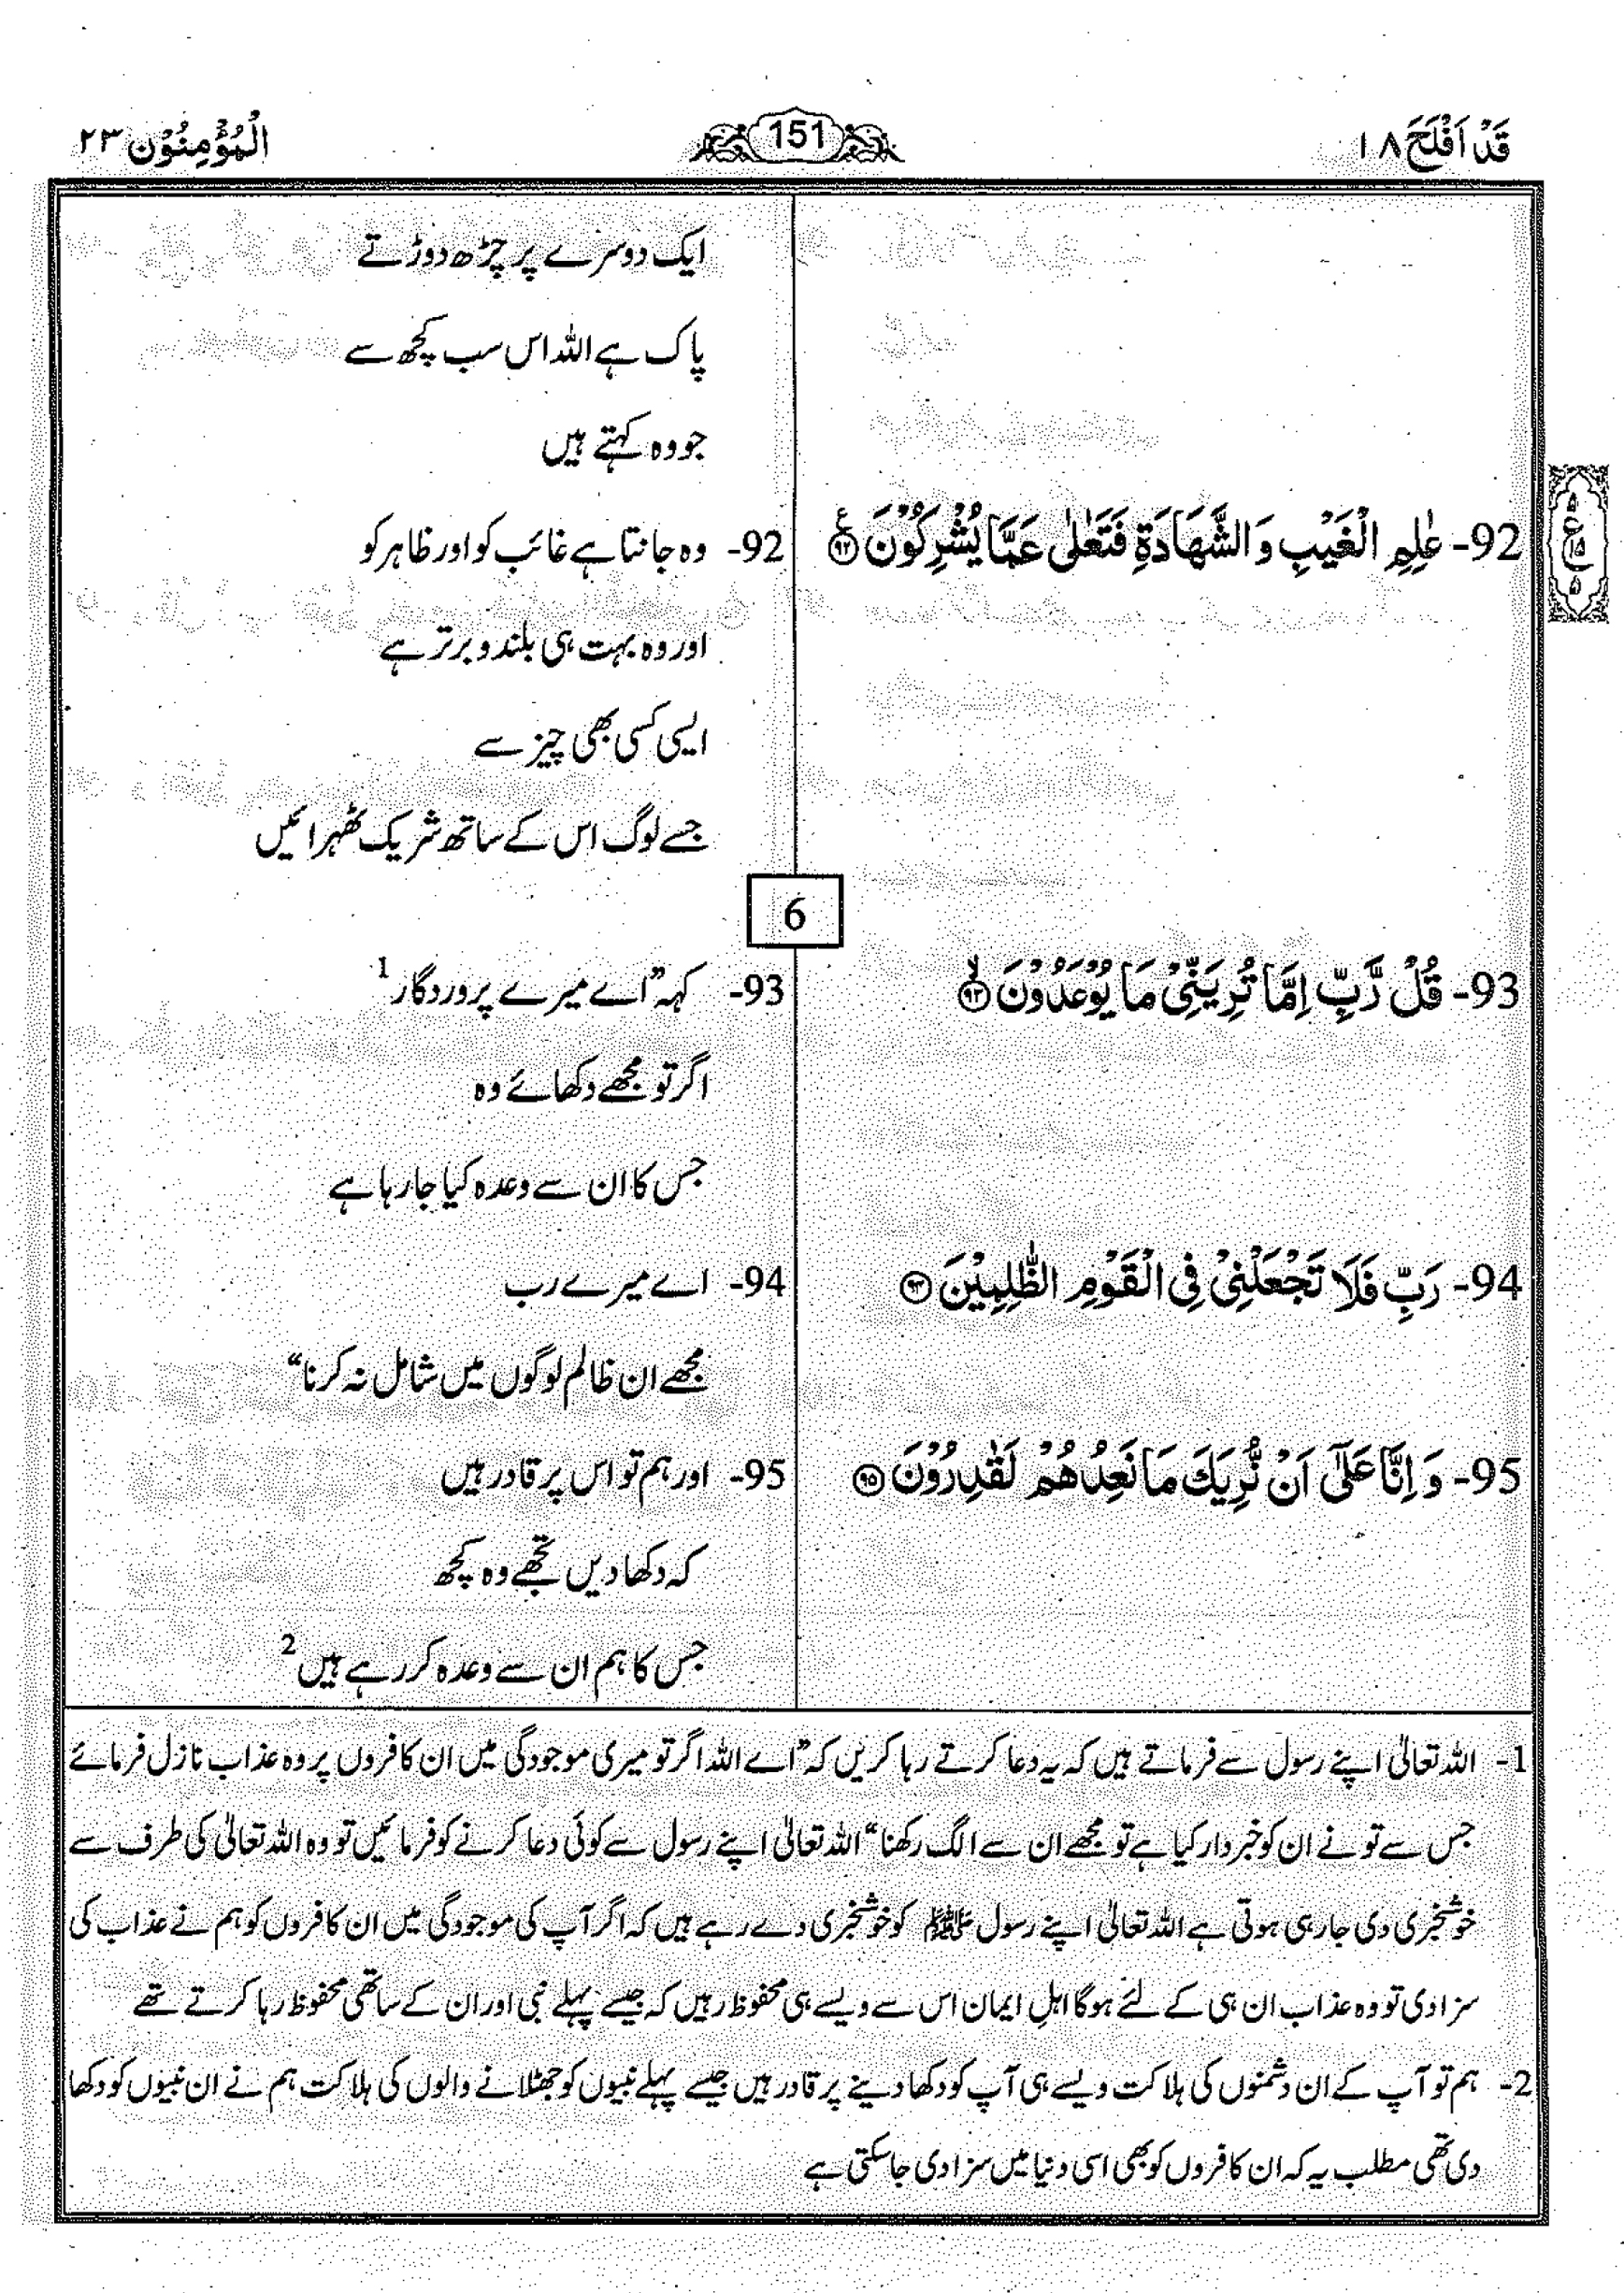 قَدْ اَفْلَحَ ۱۸
151
الْمُؤْمِنُوْن ۲۳
ایک دوسرے پر چڑھ دوڑتے
پاک ہے اللہ اس سب کچھ سے
جو وہ کہتے ہیں
92- عٰلِمِ الْغَيْبِ وَ الشَّهَادَةِ فَتَعٰلٰى عَمَّا يُشْرِكُوْنَ ۹۲ ع
92- وہ جانتا ہے غائب کو اور ظاہر کو
اور وہ بہت ہی بلند و برتر ہے
ایسی کسی بھی چیز سے
جسے لوگ اس کے ساتھ شریک ٹھہرائیں
6
93- قُلْ رَّبِّ اِمَّا تُرِيَنِّىْ مَا يُوْعَدُوْنَ ۙ۹۳
93- کہہ ”اے میرے پروردگار 1
اگر تو مجھے دکھائے وہ
جس کا ان سے وعدہ کیا جا رہا ہے
94- رَبِّ فَلَا تَجْعَلْنِىْ فِى الْقَوْمِ الظّٰلِمِيْنَ ۹۴
94- اے میرے رب
مجھے ان ظالم لوگوں میں شامل نہ کرنا“
95- وَ اِنَّا عَلٰٓى اَنْ نُّرِيَكَ مَا نَعِدُهُمْ لَقٰدِرُوْنَ ۹۵
95- اور ہم تو اس پر قادر ہیں
کہ دکھا دیں تجھے وہ کچھ
جس کا ہم ان سے وعدہ کر رہے ہیں 2
1- اللہ تعالیٰ اپنے رسول سے فرماتے ہیں کہ یہ دعا کرتے رہا کریں کہ ”اے اللہ اگر تو میری موجودگی میں ان کافروں پر وہ عذاب نازل فرمائے
جس سے تو نے ان کو خبردار کیا ہے تو مجھے ان سے الگ رکھنا“ اللہ تعالیٰ اپنے رسول سے کوئی دعا کرنے کو فرمائیں تو وہ اللہ تعالیٰ کی طرف سے
خوشخبری دی جا رہی ہوتی ہے اللہ تعالیٰ اپنے رسول ﷺ کو خوشخبری دے رہے ہیں کہ اگر آپ کی موجودگی میں ان کافروں کو ہم نے عذاب کی
سزا دی تو وہ عذاب ان ہی کے لئے ہوگا اہلِ ایمان اس سے ویسے ہی محفوظ رہیں کہ جیسے پہلے نبی اور ان کے ساتھی محفوظ رہا کرتے تھے
2- ہم تو آپ کے ان دشمنوں کی ہلاکت ویسے ہی آپ کو دکھا دینے پر قادر ہیں جیسے پہلے نبیوں کو جھٹلانے والوں کی ہلاکت ہم نے ان نبیوں کو دکھا
دی تھی مطلب یہ کہ ان کافروں کو بھی اسی دنیا میں سزا دی جا سکتی ہے